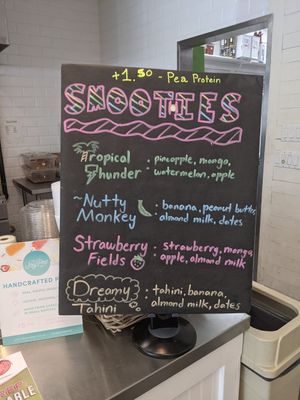 +1.50 - Pea Protein
SMOOTIES
Tropical Thunder · pineapple, mango, watermelon, apple
~Nutty Monkey · banana, peanut butter, almond milk, dates
Strawberry Fields · strawberry, mango, apple, almond milk
Dreamy Tahini · tahini, banana, almond milk, dates
HANDCRAFTED